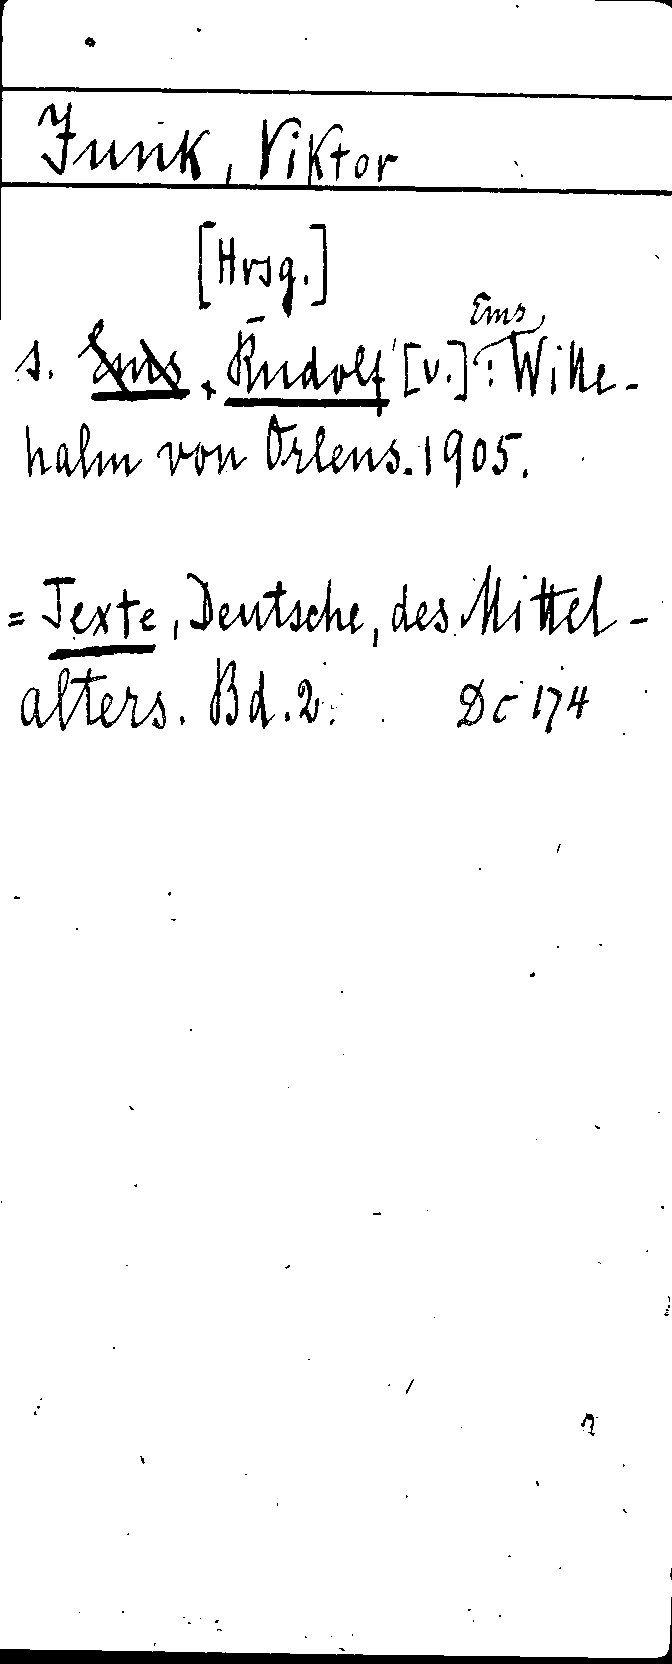 Junk, Viktor
[Hrsg.]
s. Ems, Rudolf [v.] Ems: Wille-
halm von Orlens. 1905.
= Texte, Deutsche, des Mittel-
alters. Bd. 2. Dc 174